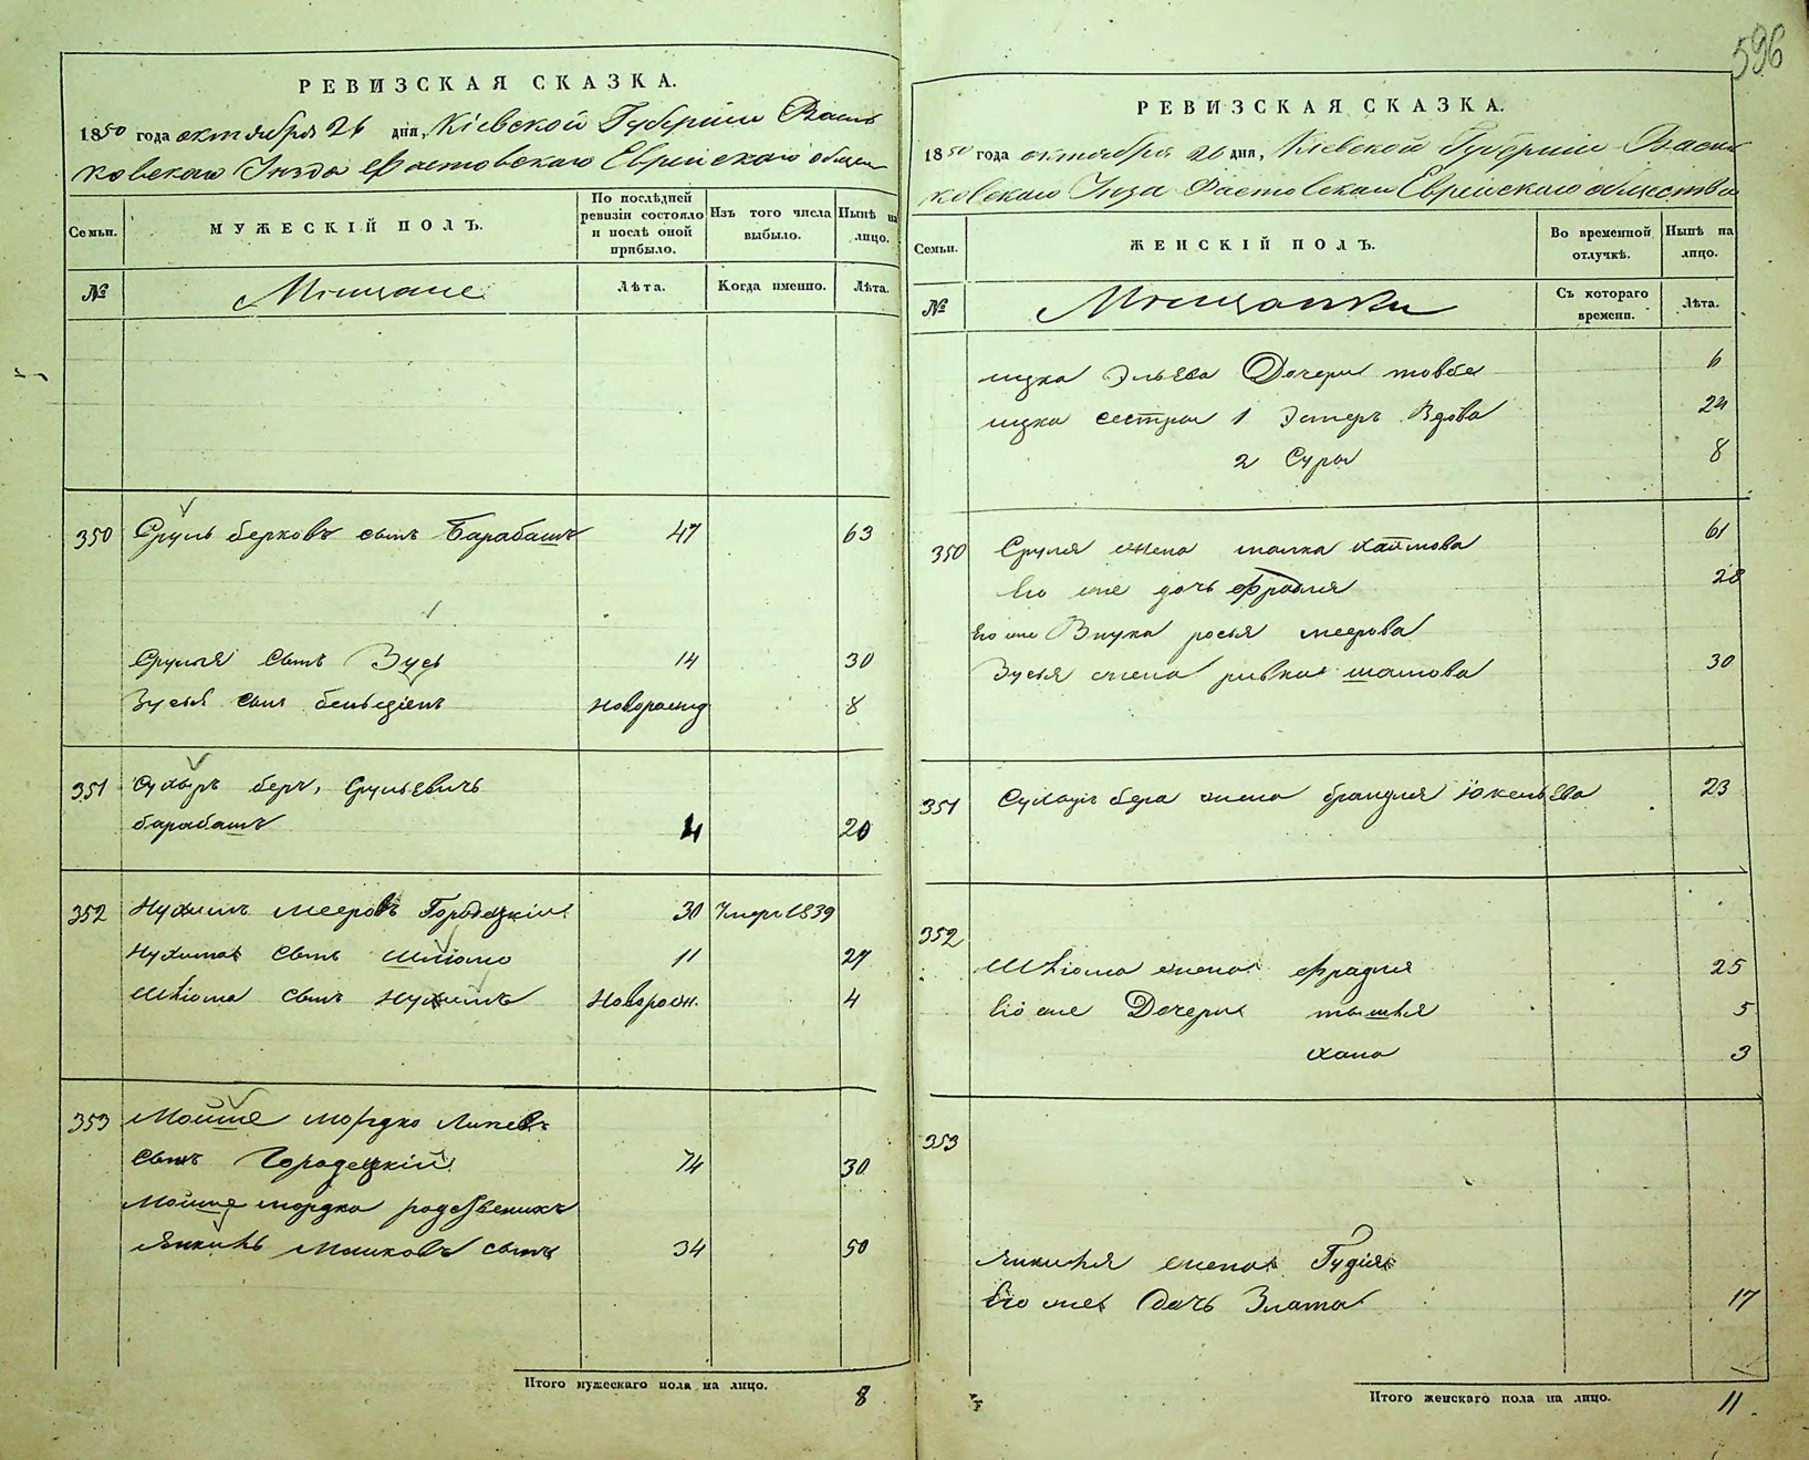 596
РЕВИЗСКАЯ СКАЗКА.
1850 года октября 26 дня, Кіевской Губерніи Василь
ковскаго Уезда Фастовскаго Еврейскаго общес
Семьи.
МУЖЕСКІЙ ПОЛЪ.
По послѣдней ревизіи состояло и послѣ оной прибыло.
Изъ того числа выбыло.
Нынѣ на лицо.
№
Мещане
Лѣта.
Когда именно.
Лѣта.
350 Сруль берковъ сынъ Барабашъ 47 63
Сруля сынъ Зусь 14 30
Зуся сынъ бенціенъ новорожд 8
351 беръ, Срулевичъ
барабашъ 4 20
352 Нухимъ мееровъ Городецкій 30 Умеръ 1839
Нухима сынъ Шліома 11 27
Шліома сынъ Нухимъ Новорож. 4
353 Мойше мордко Липовъ
сынъ Городецкій 14 30
Мойше мордка родственикъ
Янкель Мошковъ сынъ 34 50
Итого мужескаго пола на лицо. 8
РЕВИЗСКАЯ СКАЗКА.
1850 года октября 26 дня, Кіевской Губерніи Василь
ковскаго Уезда Фастовскаго Еврейскаго общества
Семьи.
ЖЕНСКІЙ ПОЛЪ.
Во временной отлучкѣ.
Нынѣ на лицо.
№
Мещанки
Съ котораго времени.
Лѣта.
ицка Эльева Дочери товбе 6
ицка сестра 1 Эстеръ Вдова 24
2 Сура 8
350 Сруля жена малка хаймова 61
Его же дочь Фрадля 28
Его же Внука рося меерова
Зуся жена ривка шамова 30
351 бера жена брандля Іокельева 23
352
Шліома жена фрадля 25
Его же Дочери 5
хана 3
353
Янкеля жена Гудія
Его же дочь Злата 17
Итого женскаго пола на лицо. 11